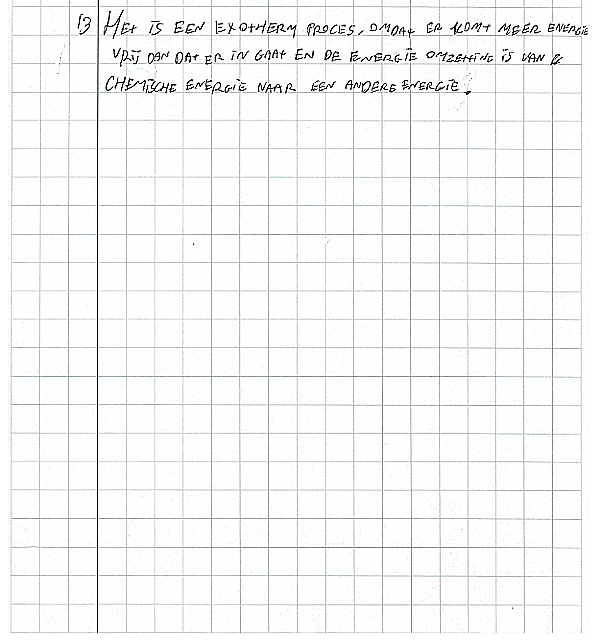 13 HET IS EEN EXOTHERM PROCES, OMDAT ER KOMT MEER ENERGIE
VRIJ DAN DAT ER IN GAAT EN DE ENERGIE OMZETTING IS VAN
CHEMISCHE ENERGIE NAAR EEN ANDERE ENERGIE.